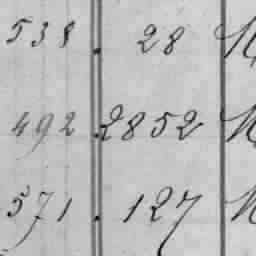 538 . 28
492 2852
571 . 127